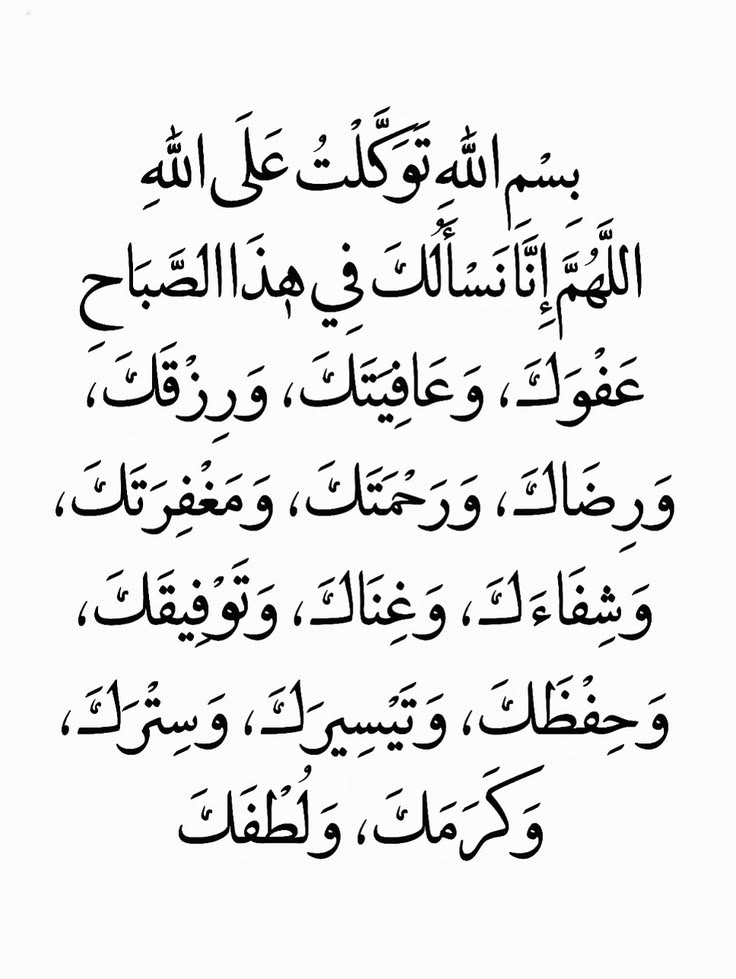 بِسْمِ اللهِ تَوَكَّلْتُ عَلَى اللهِ
اللَّهُمَّ إِنَّا نَسْأَلُكَ فِي هٰذَا الصَّبَاحِ
عَفْوَكَ، وَعَافِيَتَكَ، وَرِزْقَكَ،
وَرِضَاكَ، وَرَحْمَتَكَ، وَمَغْفِرَتَكَ،
وَشِفَاءَكَ، وَغِنَاكَ، وَتَوْفِيقَكَ،
وَحِفْظَكَ، وَتَيْسِيرَكَ، وَسِتْرَكَ،
وَكَرَمَكَ، وَلُطْفَكَ